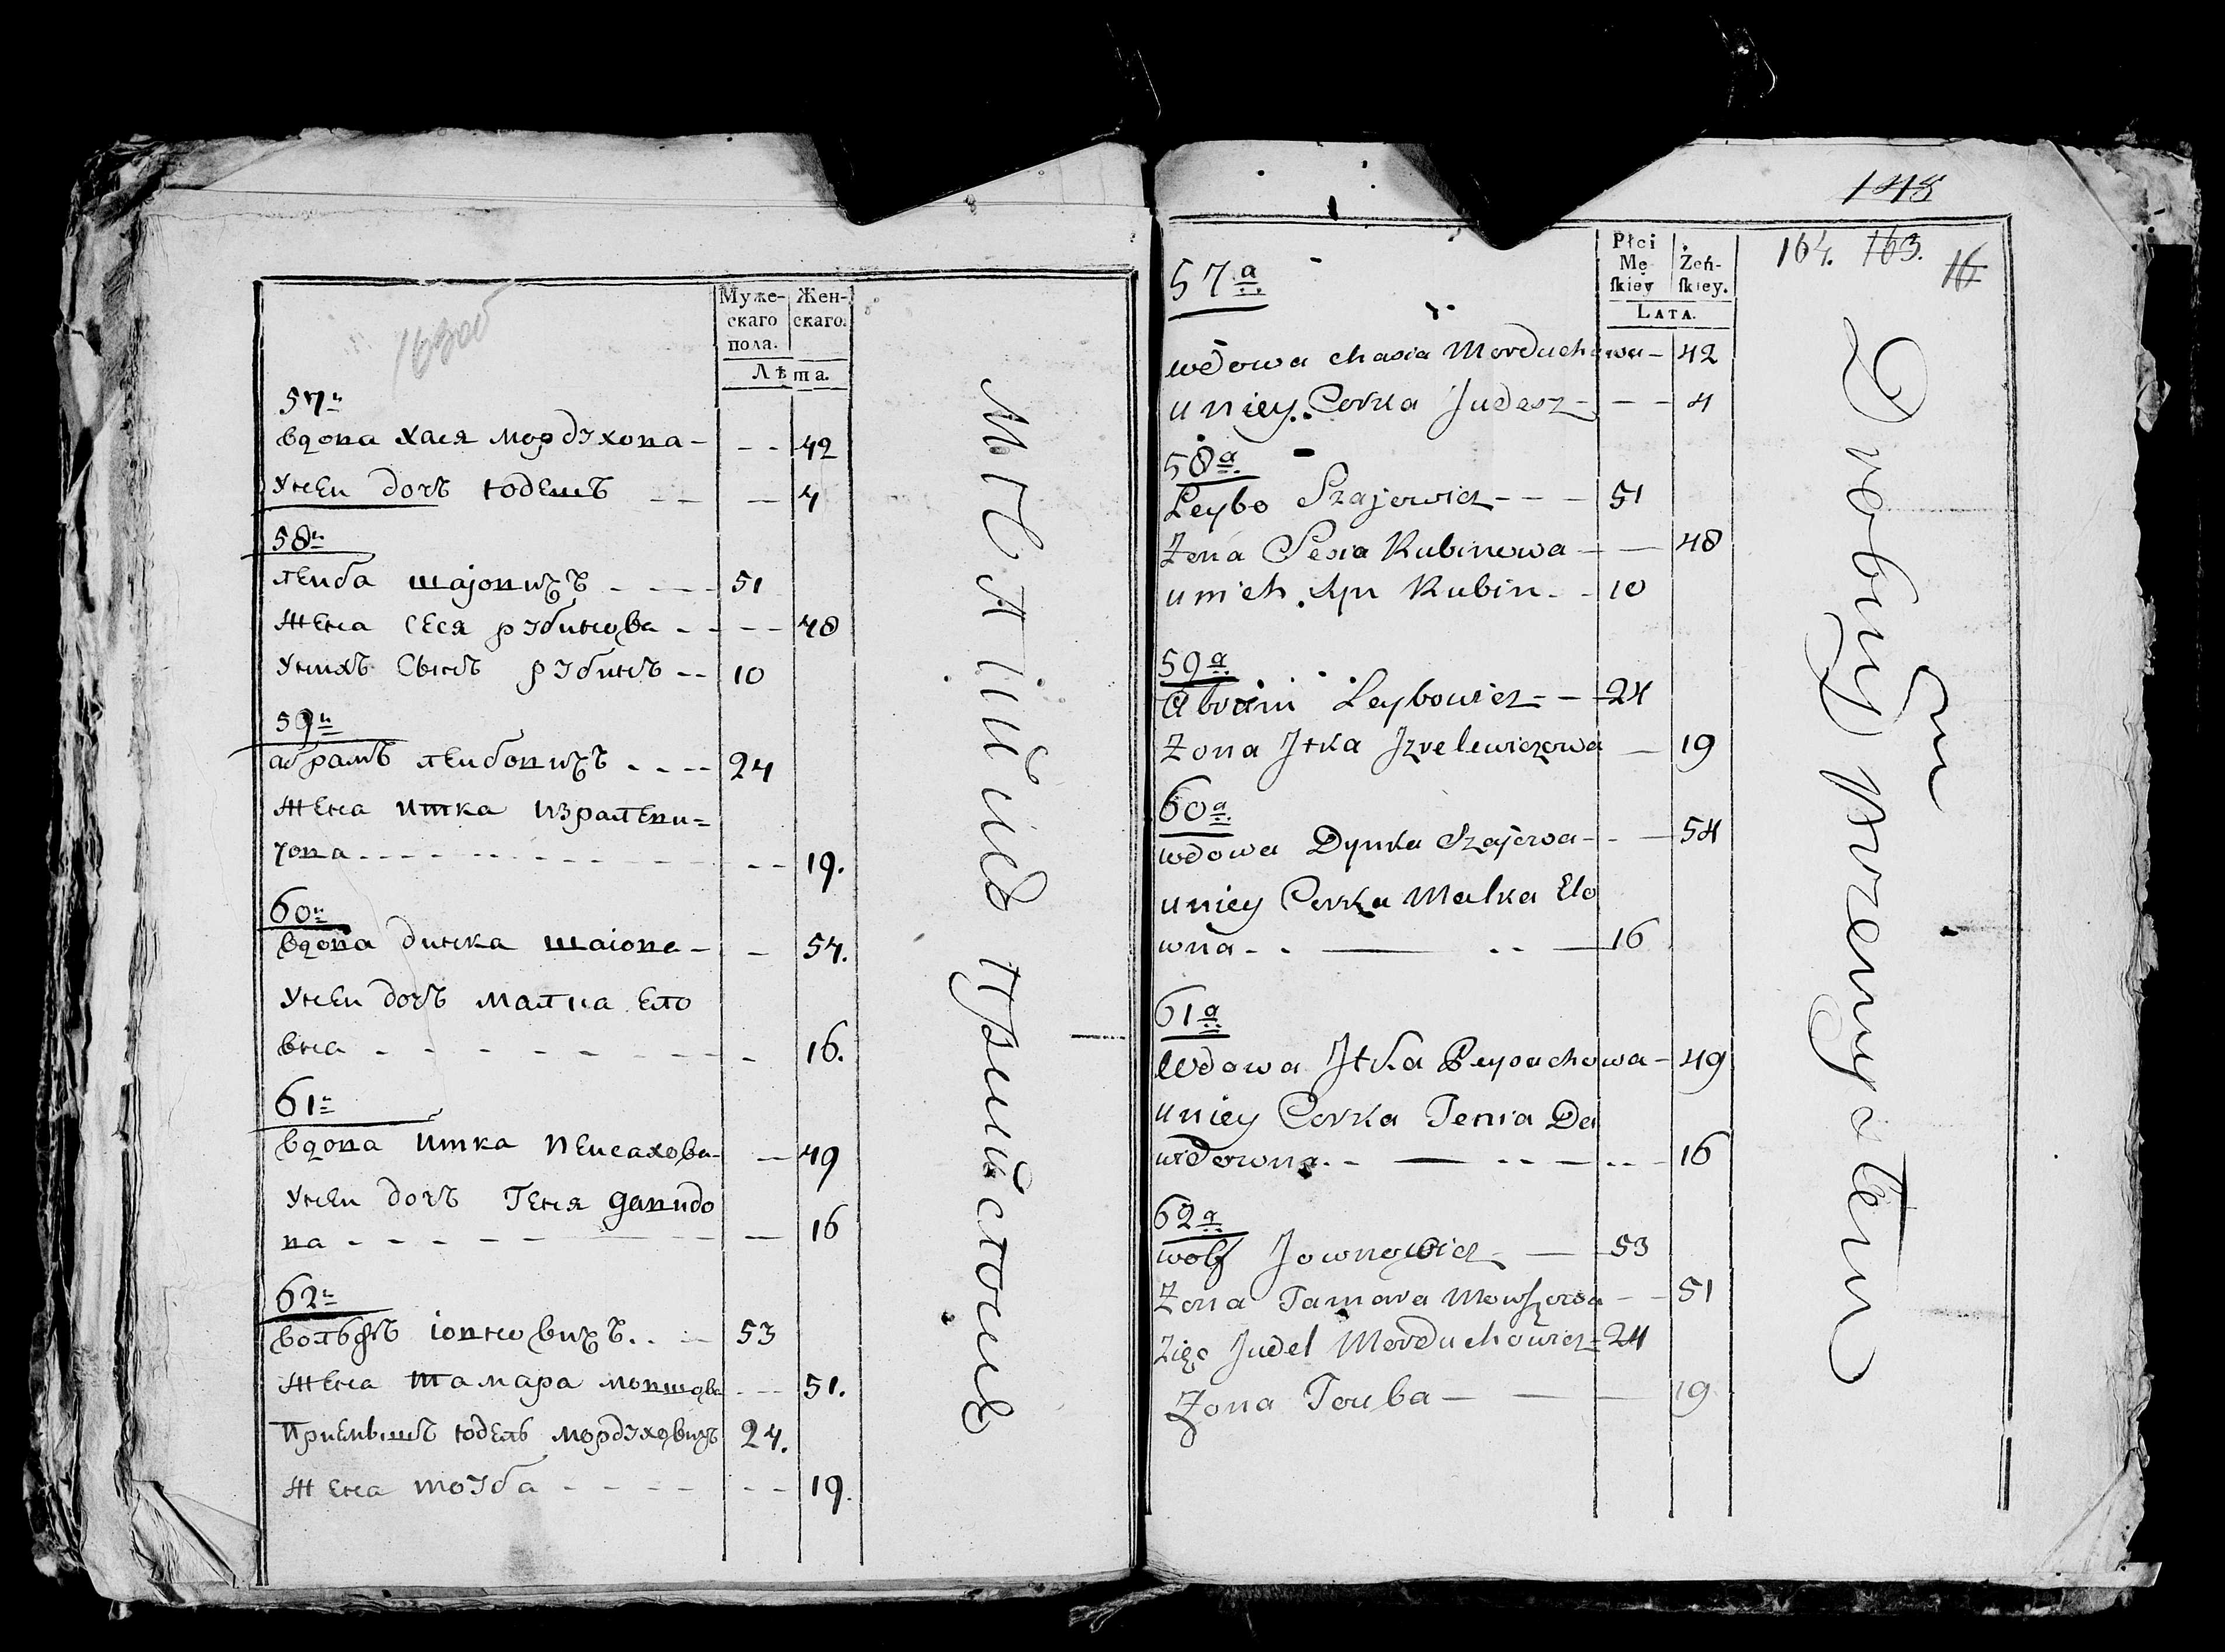 163об
Муже-
скаго
пола.
Жен-
скаго.
Лѣта.
57й
вдова хася мордухова - - - 42
унеи дочъ юдешъ - - - 4
58й
леиба шаіовичъ - - - 51
жена сеся рубинова - - - - 48
унихъ сынъ рубинъ - - 10
59й
абрамъ леибовичъ - - - - 24
жена итка израелеви=
чова - - - - 19.
60й
вдова динка шаіова - - 54.
унеи дочъ малка ело
вна - - - - 16.
61й
вдова итка пеисахова - - 49
унеи дочъ геня давидо
ва - - - - 16
62й
вольфъ іовновичъ. . - 53
жена тамара мовшова - - - 51.
приемышъ юдель мордуховичъ 24.
жена тоуба - - - - - - 19.
мѣчайшіе промыслом
148
164. 163. 16
Płci
Mę
skiey
Żeń-
skiey.
LATA.
57a
wdowa chasia Morduchowa - 42
u niey Corka Judesz - - - 4
58a
Leybo Szajewicz - - - 51
Zona Sesia Rubinowa - - 48
u nich Syn Rubin - - 10
59a
Abram Leybowicz - - 24
Zona Jtka Jzrelewiczowa - 19
60a
wdowa Dynka Szajewa - - - 54
u niey Corka Malka Elo
wna - - - - 16
61a
Wdowa Jtka Peysachowa - 49
u niey Corka Genia Da
widowna. - - - - - 16
62a
wolf Jownowicz - - 53
Zona Tamara Mowszowa - - 51
Zięc Judel Morduchowicz - 24
Zona Touba - - - 19
Drobny przemysłem